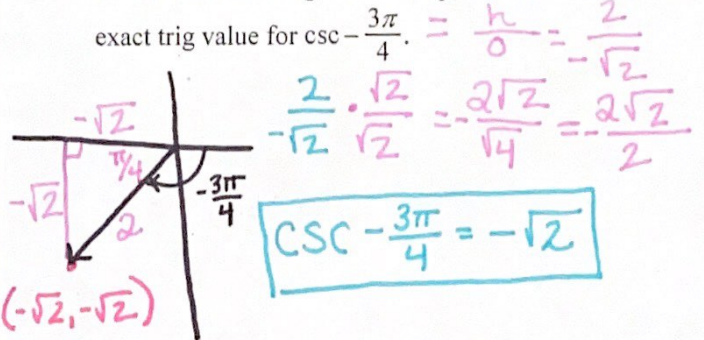 exact trig value for csc −3π/4. = h/o = 2/−√2
2/−√2 · √2/√2 = −2√2/√4 = −2√2/2
−√2
π/4
−√2
2
−3π/4
csc −3π/4 = −√2
(−√2, −√2)